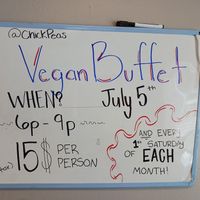 @ChickPeas
Vegan Buffet
WHEN? July 5th
6p - 9p
15$ PER PERSON
AND EVERY
1st SATURDAY
OF EACH
MONTH!